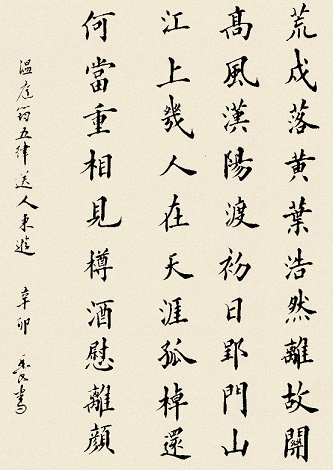 荒戍落黄葉浩然離故關
高風漢陽渡初日郢門山
江上幾人在天涯孤棹還
何當重相見樽酒慰離顔
温庭筠五律送人東遊 辛卯 書